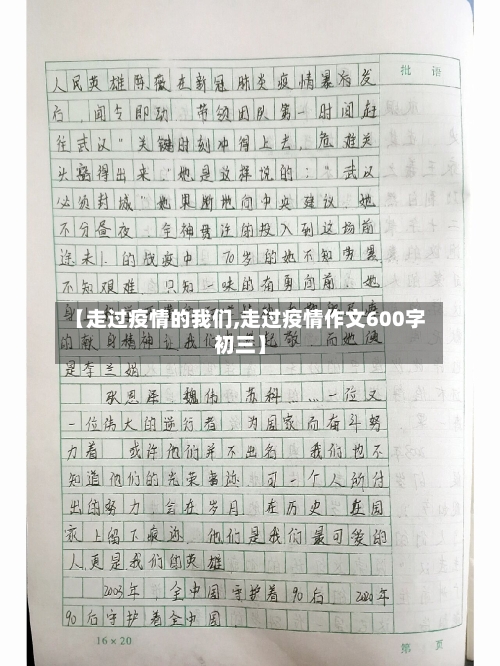 批 语
人民英雄陈薇在新冠肺炎疫情暴发
后，闻令即动，带领团队第一时间赶
往武汉"关键时刻冲得上去，危难关
头豁得出来"她是这样说的："武汉
必须封城"她果断地向中央建议，她
不分昼夜，全神贯注的投入到这场前
途未卜的战疫中，70岁的她不知劳累
不知艰难，只知一味的奋勇向前，她
【走过疫情的我们,走过疫情作文600字
初三】
的献身精神让我们 起敬，而她便
是李兰娟
张思洋 魏伟 苏科……一位又
一位伟大的逆行者，为国家而奋斗努
力着，或许他们并不出名，我们也不
知道他们的光荣事迹，可一个人所付
出的努力，会在岁月，在历史，在国
家上留下痕迹，他们是我们最可爱的
人，更是我们的英雄
2003年，全中国守护着90后，2020年
90后守护着全中国
16×20
第 页